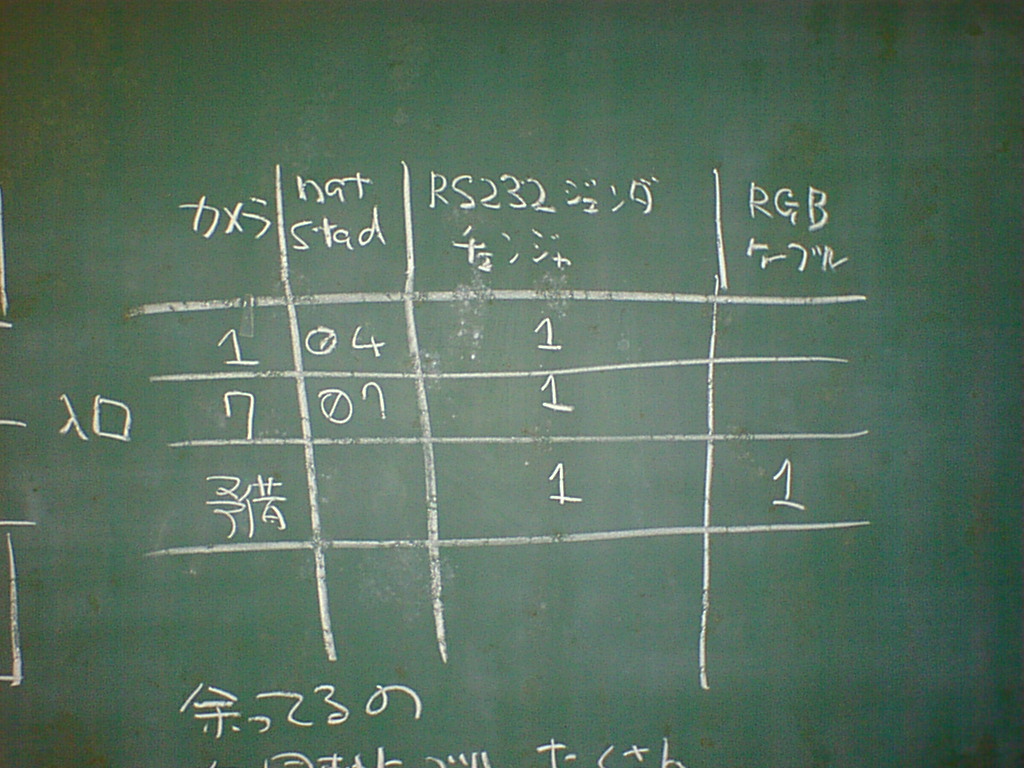 カメラ nat stad RS232 ジェンダ チェンジャ RGB ケーブル
1 04 1
入口 7 07 1
予備 1 1
余ってるの
ケーブル たくさん